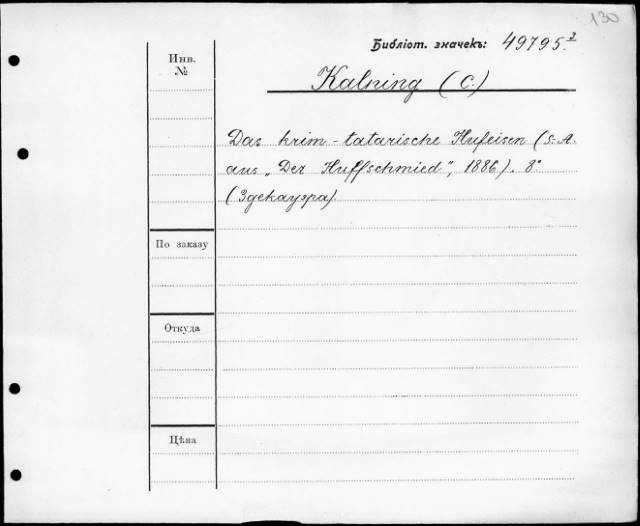 130
Библіот. значекъ: 49795.³
Инв.
№
Kalning (C.)
Das krim-tatarische Hufeisen (S.-A.
aus „Der Huffschmied", 1886). 8°
(Здекауэра).
По заказу
Откуда
Цѣна